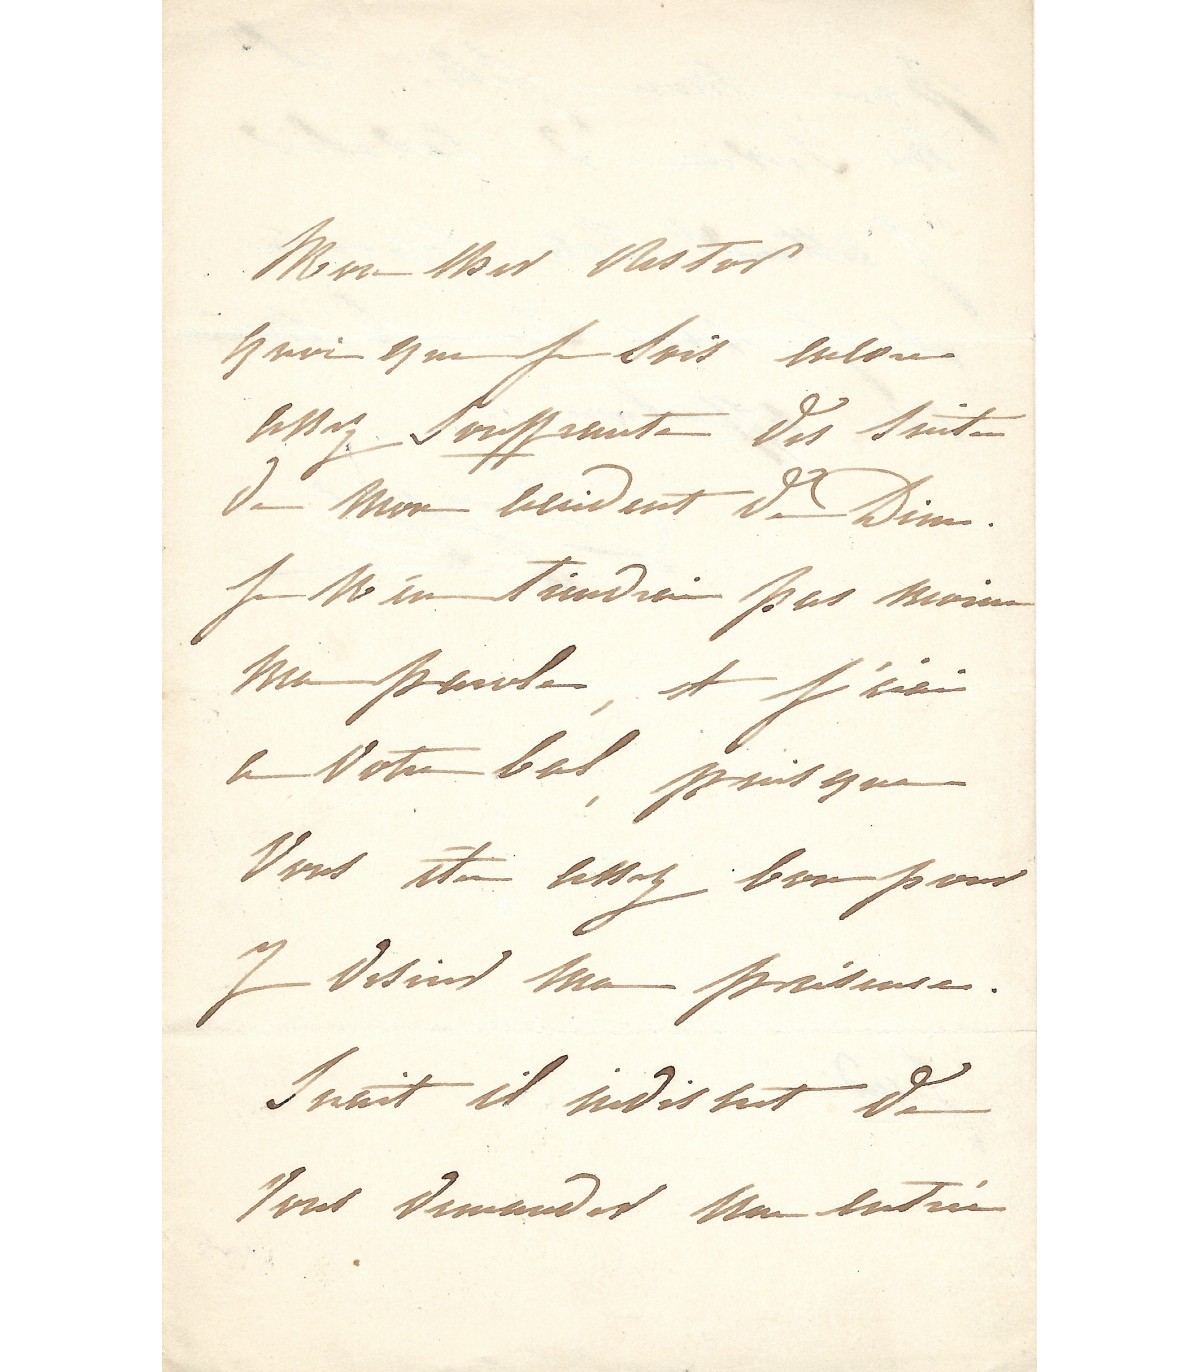 Mon cher Nestor
quoi que je sois encore
assez souffrante des suites
de mon accident de Dim.
je n'en tiendrai pas moins
ma parole, et j'irai
a votre bal, puisque
vous êtes assez bon pour
y desirer ma présence.
Serait il indiscret de
vous demander une entrée